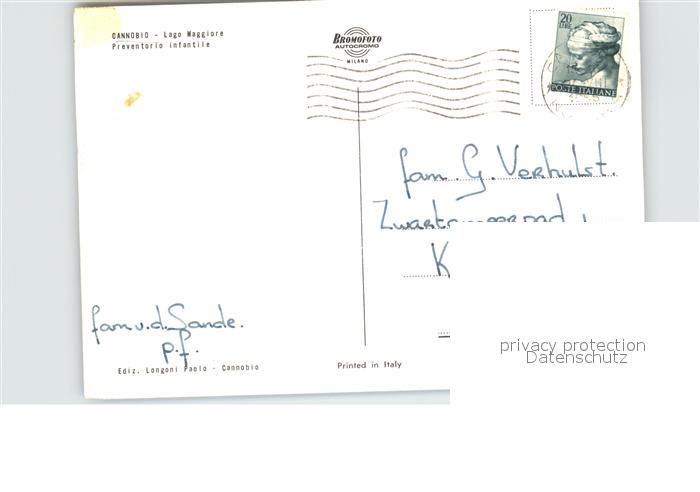 CANNOBIO - Lago Maggiore
Preventorio infantile
BROMOFOTO
AUTOCROMO
MILANO
20
LIRE
POSTE ITALIANE
fam. G. Verhulst.
K
fam v.d. Sande.
p.f.
Ediz. Longoni Paolo - Cannobio
Printed in Italy
privacy protection
Datenschutz